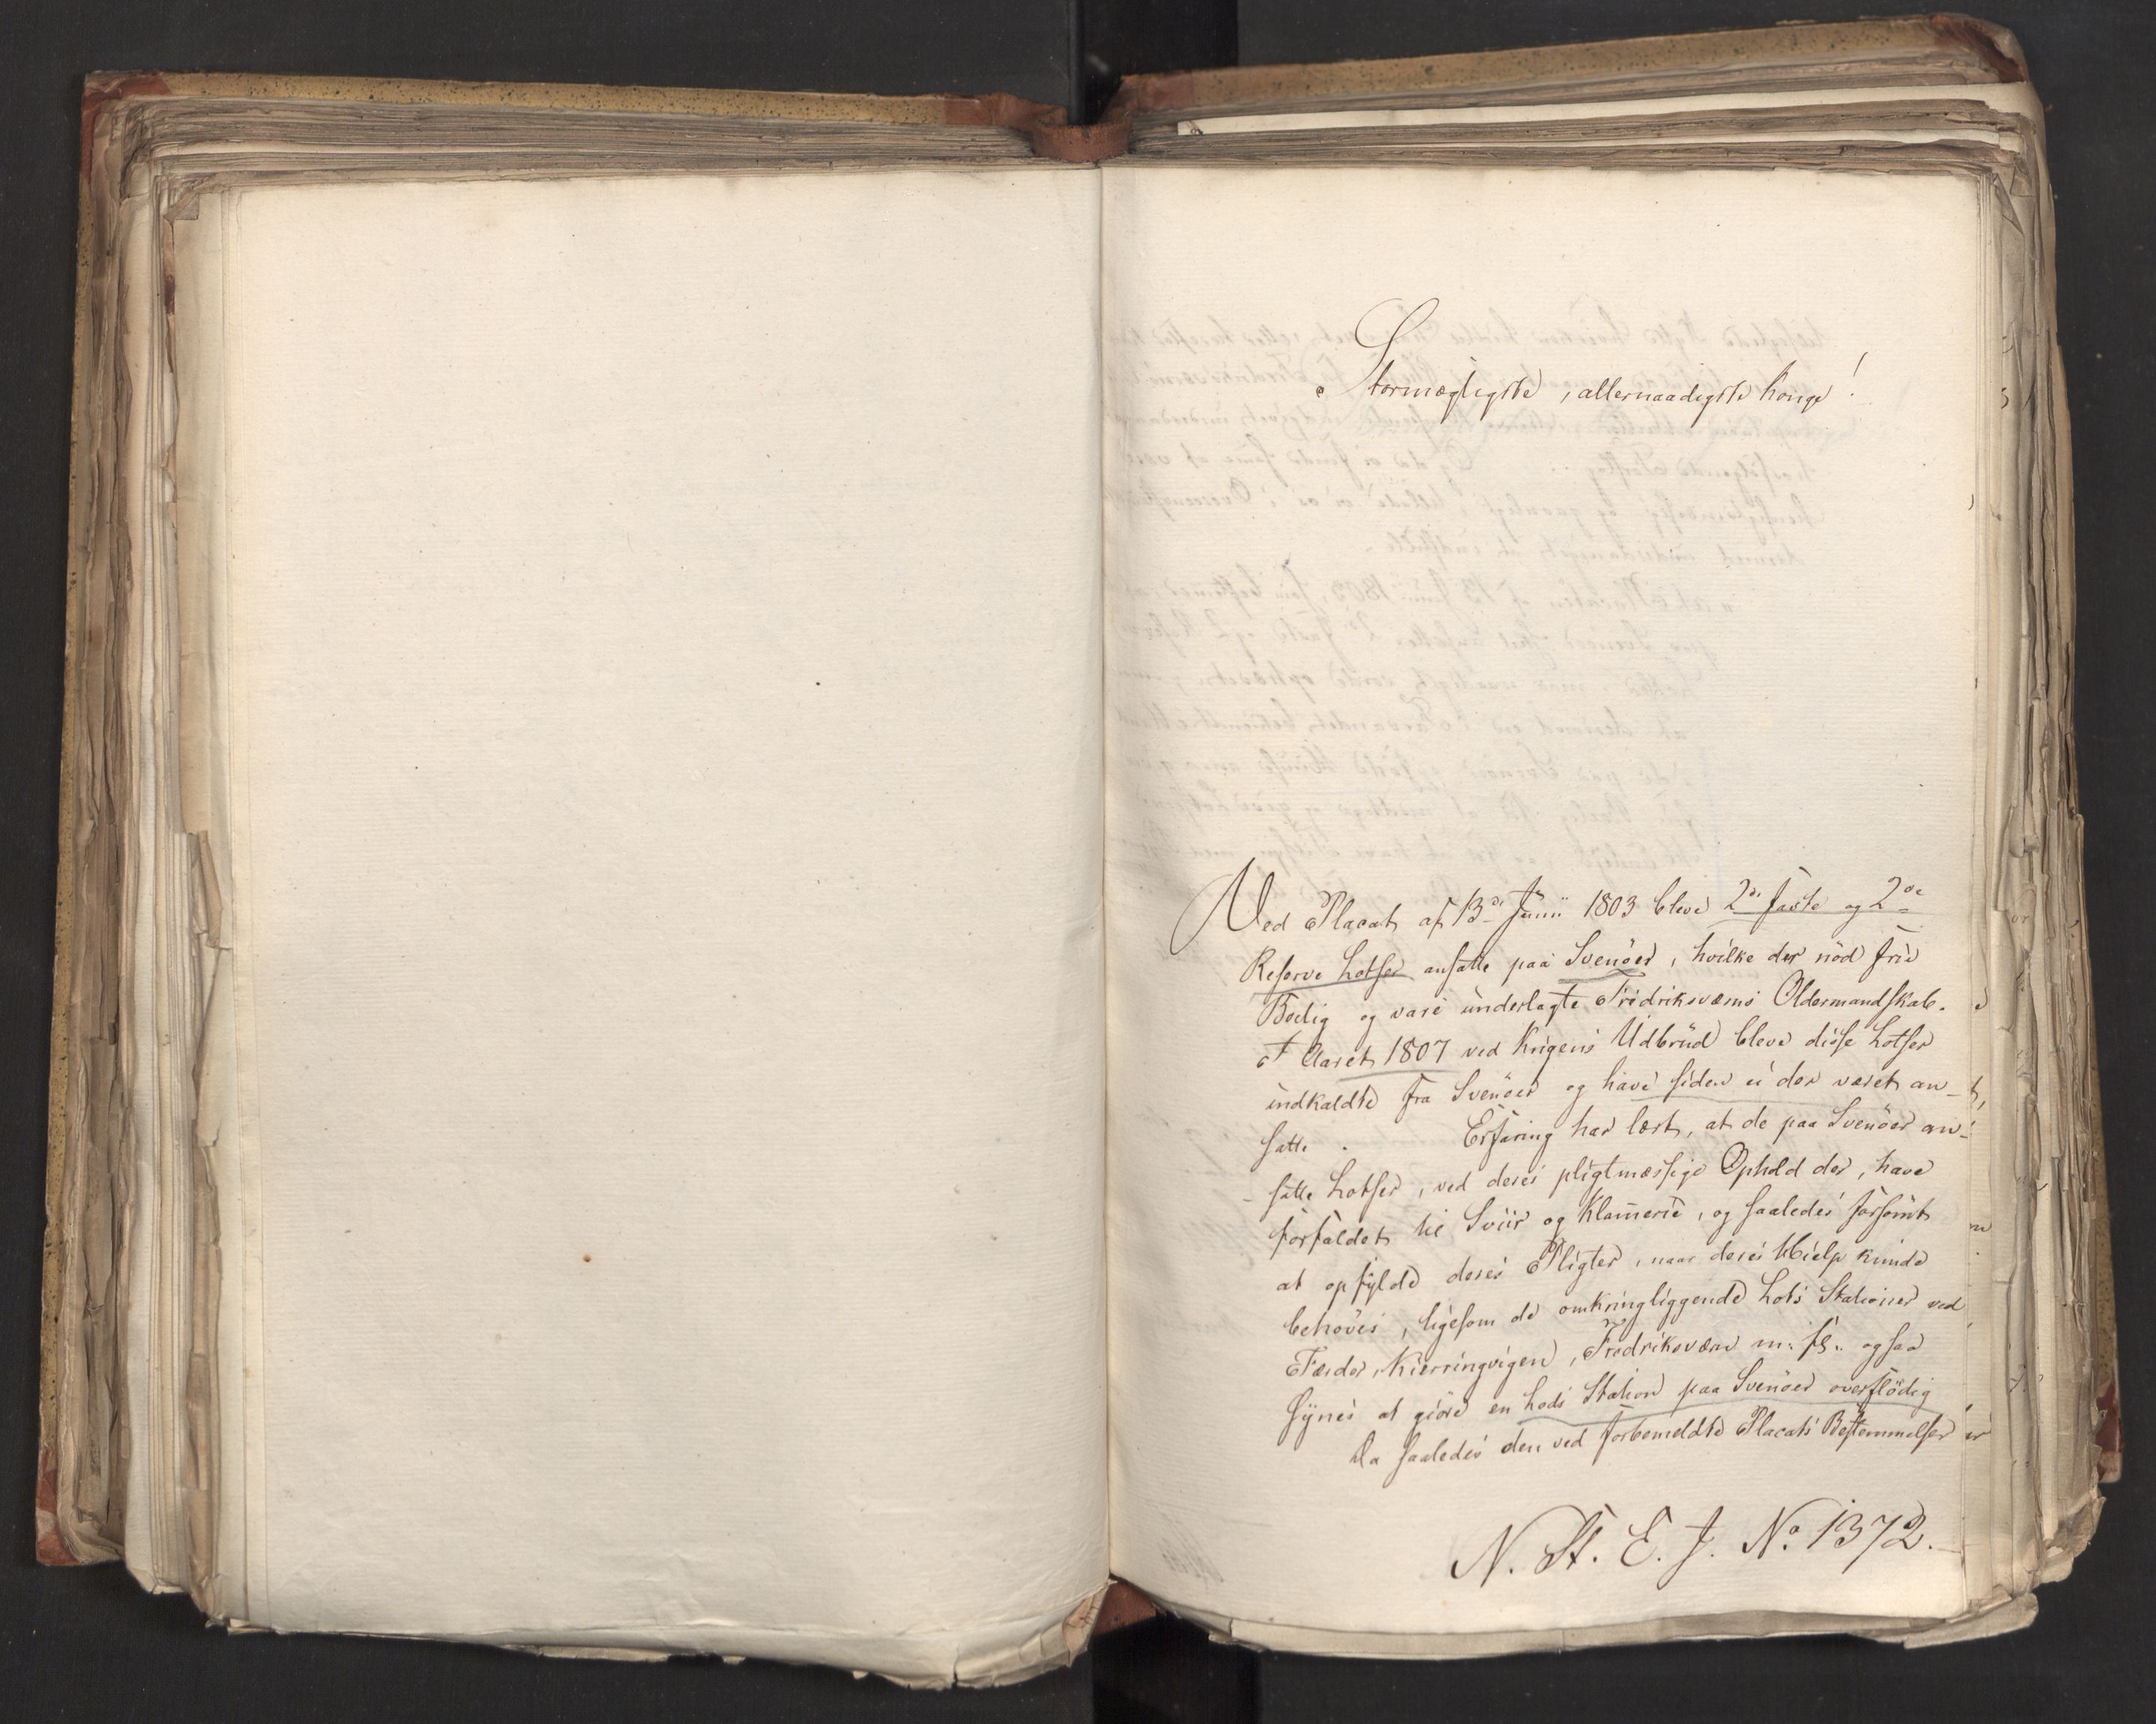 Stormægtigste, allernaadigste Konge!
Ved Placat af 13de Junii 1803 bleve 2de faste og 2de
Reserve Lotser ansatte paa Svenöer, hvilke der nöd frie
Bolig og vare underlagte Fridriksværns Oldermandskab.
I Aaret 1807 ved Krigens Udbrud bleve disse Lotser
indkaldte fra Svenöer og have siden ei der været an-
satte. Erfaring har lært, at de paa Svenöer an-
satte Lotser, ved deres pligtmæssige Ophold der, have
forfaldet til Sviir og Klammerie, og saaledes forsömt
at opfylde deres Pligter, naar deres Hielp kunde
behöves, ligesom de omkringliggende Lods Stationer ved
Færder, Kierringvigen, Fredriksværn m: fl: ogsaa
synes at giöre en Lods Station paa Svenöer overflödig
Da saaledes den ved forbemeldte Placats Bestemmelser
N. St. E. J. No 1372.